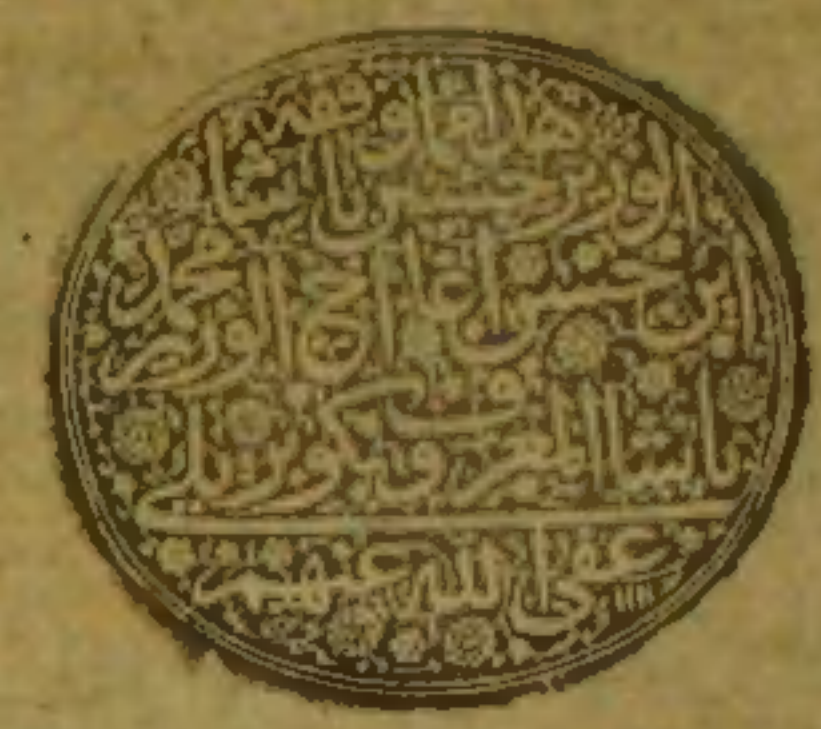 هذا ما وقفه
الوزير حسين باشا
ابن حسن اغا اخ الوزير محمد
باشا المعروف بكوپريلى
عفى الله عنهم